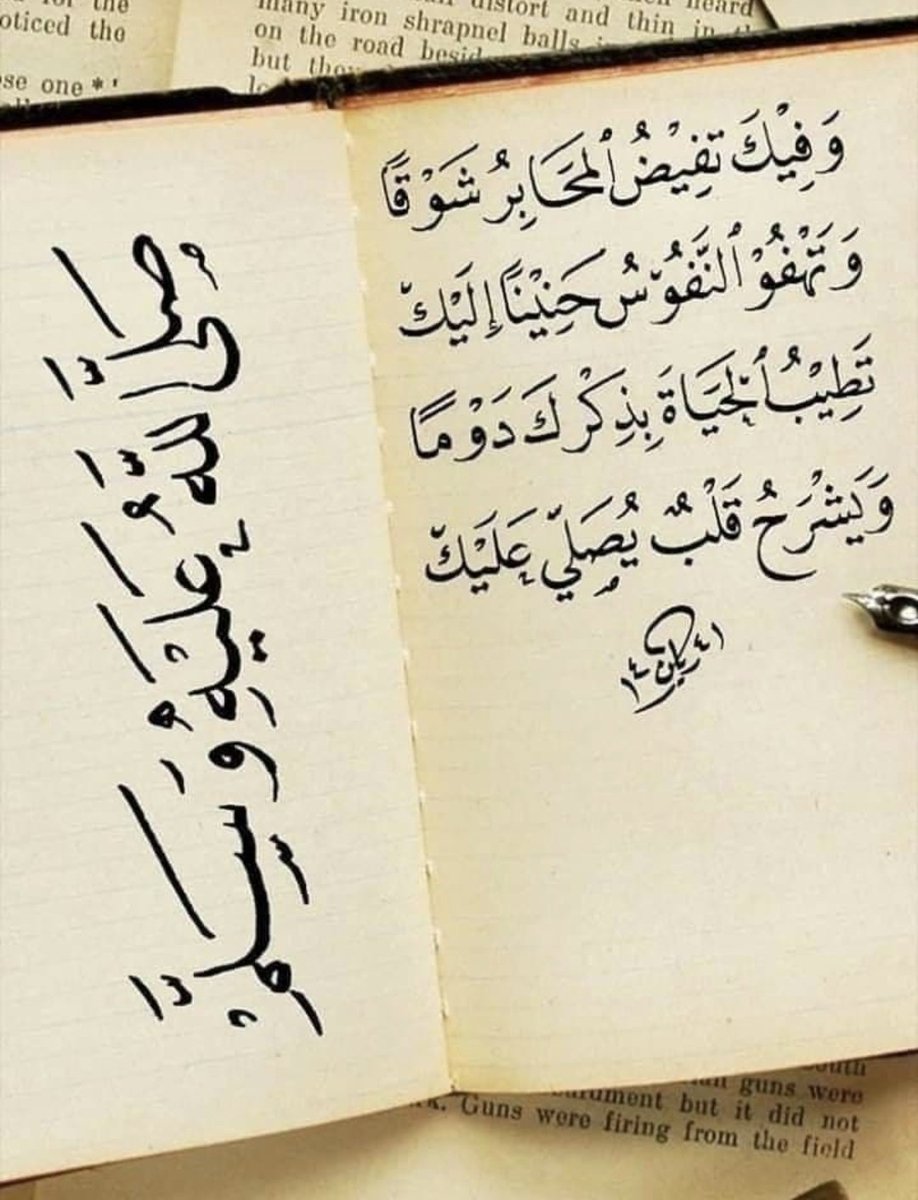 for the
noticed the
se one *'
many iron shrapnel balls
distort and thin in
heard
on the road besid
but they
وَفِيْكَ تَفِيْضُ ٱلمَحَابِرُ شَوْقًا
وَتَهْفُوْ ٱلنُّفُوْسُ حَنِيْنًا إِلَيْكَ
تَطِيْبُ ٱلحَيَاةَ بِذِكْرِكَ دَوْمًا
وَيَشْرَحُ قَلْبٌ يُصَلِّي عَلَيْكَ
صَلَّى اللَّهُ عَلَيْهِ وَسَلَّمَ
guns were
but it did not
Guns were firing from the field